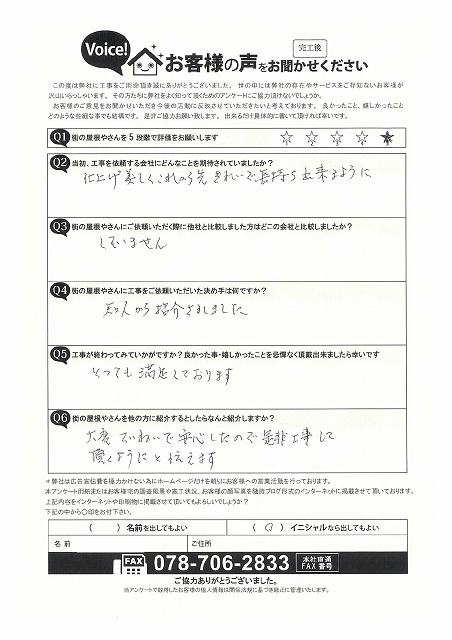 Voice!
お客様の声をお聞かせください
完工後
この度は弊社に工事をご用命頂き誠にありがとうございました。世の中には弊社の存在やサービスをご存知ないお客様が
沢山いらっしゃいます。その方たちに弊社をよく知って頂くためのアンケートにご協力頂けないでしょうか。
お客様のご意見をお聞かせいただき今後の活動に反映させていただきたいと考えております。良かったこと、嬉しかったこと
どのような些細な事でも結構です。是非ご協力お願い致します。出来るだけ具体的に書いて頂ければ幸いです。
Q1 街の屋根やさんを5段階で評価をお願いします ☆ ☆ ☆ ☆ ★
Q2 当初、工事を依頼する会社にどんなことを期待されていましたか?
仕上げ美しくこれから先きれいで長持ち出来るように
Q3 街の屋根やさんにご依頼いただく際に他社と比較しました方はどこの会社と比較しましたか?
していません
Q4 街の屋根やさんに工事をご依頼いただいた決め手は何ですか?
知人から紹介されました
Q5 工事が終わってみていかがですか?良かった事・嬉しかったことを忌憚なく頂戴出来ましたら幸いです
とっても満足しております
Q6 街の屋根やさんを他の方に紹介するとしたらなんと紹介しますか?
大変ていねいで安心したので是非工事して
頂くようにと伝えます
*弊社は広告宣伝費を極力かけない為にホームページだけを頼りにお客様への営業活動を行っております。
本アンケート用紙またはお客様宅の調査風景や施工状況、お客様の顔写真を随時ブログ形式のインターネットに掲載させて頂いております。
上記内容をインターネットや印刷物に掲載させて頂いてもよろしいでしょうか?
下記の中から○印をお付下さい。
( )名前を出してもよい (○)イニシャルなら出してもよい
名前 ご住所
FAX 078-706-2833 本社直通 FAX番号
ご協力ありがとうございました。
当アンケートで取得したお客様の個人情報は関係法規に基づき厳正に管理いたします。